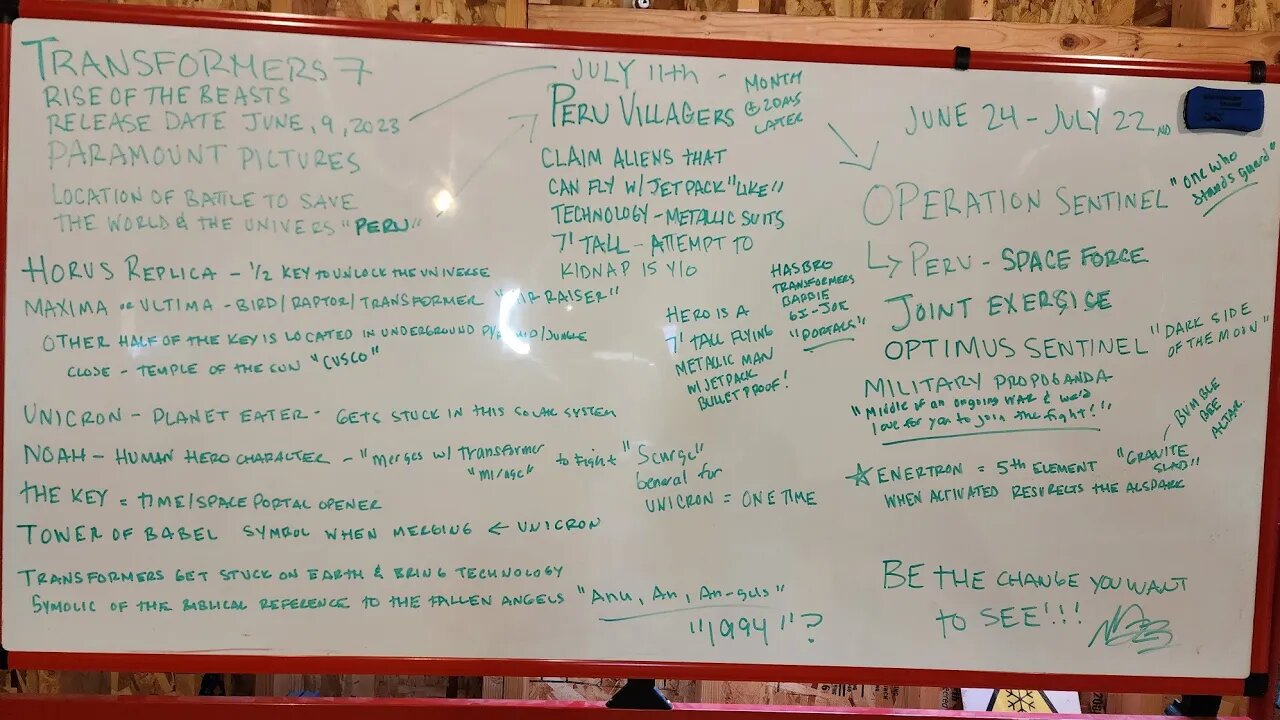 TRANSFORMERS 7
RISE OF THE BEASTS
RELEASE DATE JUNE, 9, 2023
PARAMOUNT PICTURES
LOCATION OF BATTLE TO SAVE
THE WORLD & THE UNIVERS "PERU"
HORUS REPLICA - 1/2 KEY TO UNLOCK THE UNIVERSE
MAXIMA or ULTIMA - BIRD/RAPTOR/TRANSFORMER RAISER"
OTHER HALF OF THE KEY IS LOCATED IN UNDERGROUND /JUNGLE
CLOSE - TEMPLE OF THE SUN "CUSCO"
UNICRON - PLANET EATER - GETS STUCK IN THIS SOLAR SYSTEM
NOAH - HUMAN HERO CHARACTER - "Merges w/ Transformer
"Mirage" to Fight "Scurge"
General for
UNICRON = ONE TIME
THE KEY = TIME/SPACE PORTAL OPENER
TOWER OF BABEL SYMBOL WHEN MERGING ← UNICRON
TRANSFORMERS GET STUCK ON EARTH & BRING TECHNOLOGY
SYMOLIC OF THE BIBLICAL REFERENCE TO THE FALLEN ANGELS "Anu, An, An-gus"
"1994"?
JULY 11th -
PERU VILLAGERS
MONTH
& 2 DAYS
LATER
CLAIM ALIENS THAT
CAN FLY W/JETPACK "LIKE"
TECHNOLOGY - METALLIC SUITS
7' TALL - ATTEMPT TO
KIDNAP 15 Y/O
HERO IS A
7' TALL FLYING
METALLIC MAN
W/JETPACK
BULLET PROOF!
HASBRO
TRANSFORMERS
BARBIE
GI-JOE
"PORTALS"
JUNE 24 - JULY 22 ND
OPERATION SENTINEL
"one who
stands guard"
↳ PERU - SPACE FORCE
JOINT EXERSICE
OPTIMUS SENTINEL
"DARK SIDE
OF THE MOON"
MILITARY PROPOGANDA
"Middle of an ongoing WAR & we'd
love for you to join the fight!"
BUMBLE
BEE
ALTAR
☆ ENERTRON = 5th ELEMENT "GRANITE
SLAB"
WHEN ACTIVATED RESURECTS THE ALSPARK
BE THE CHANGE YOU WANT
TO SEE!!!